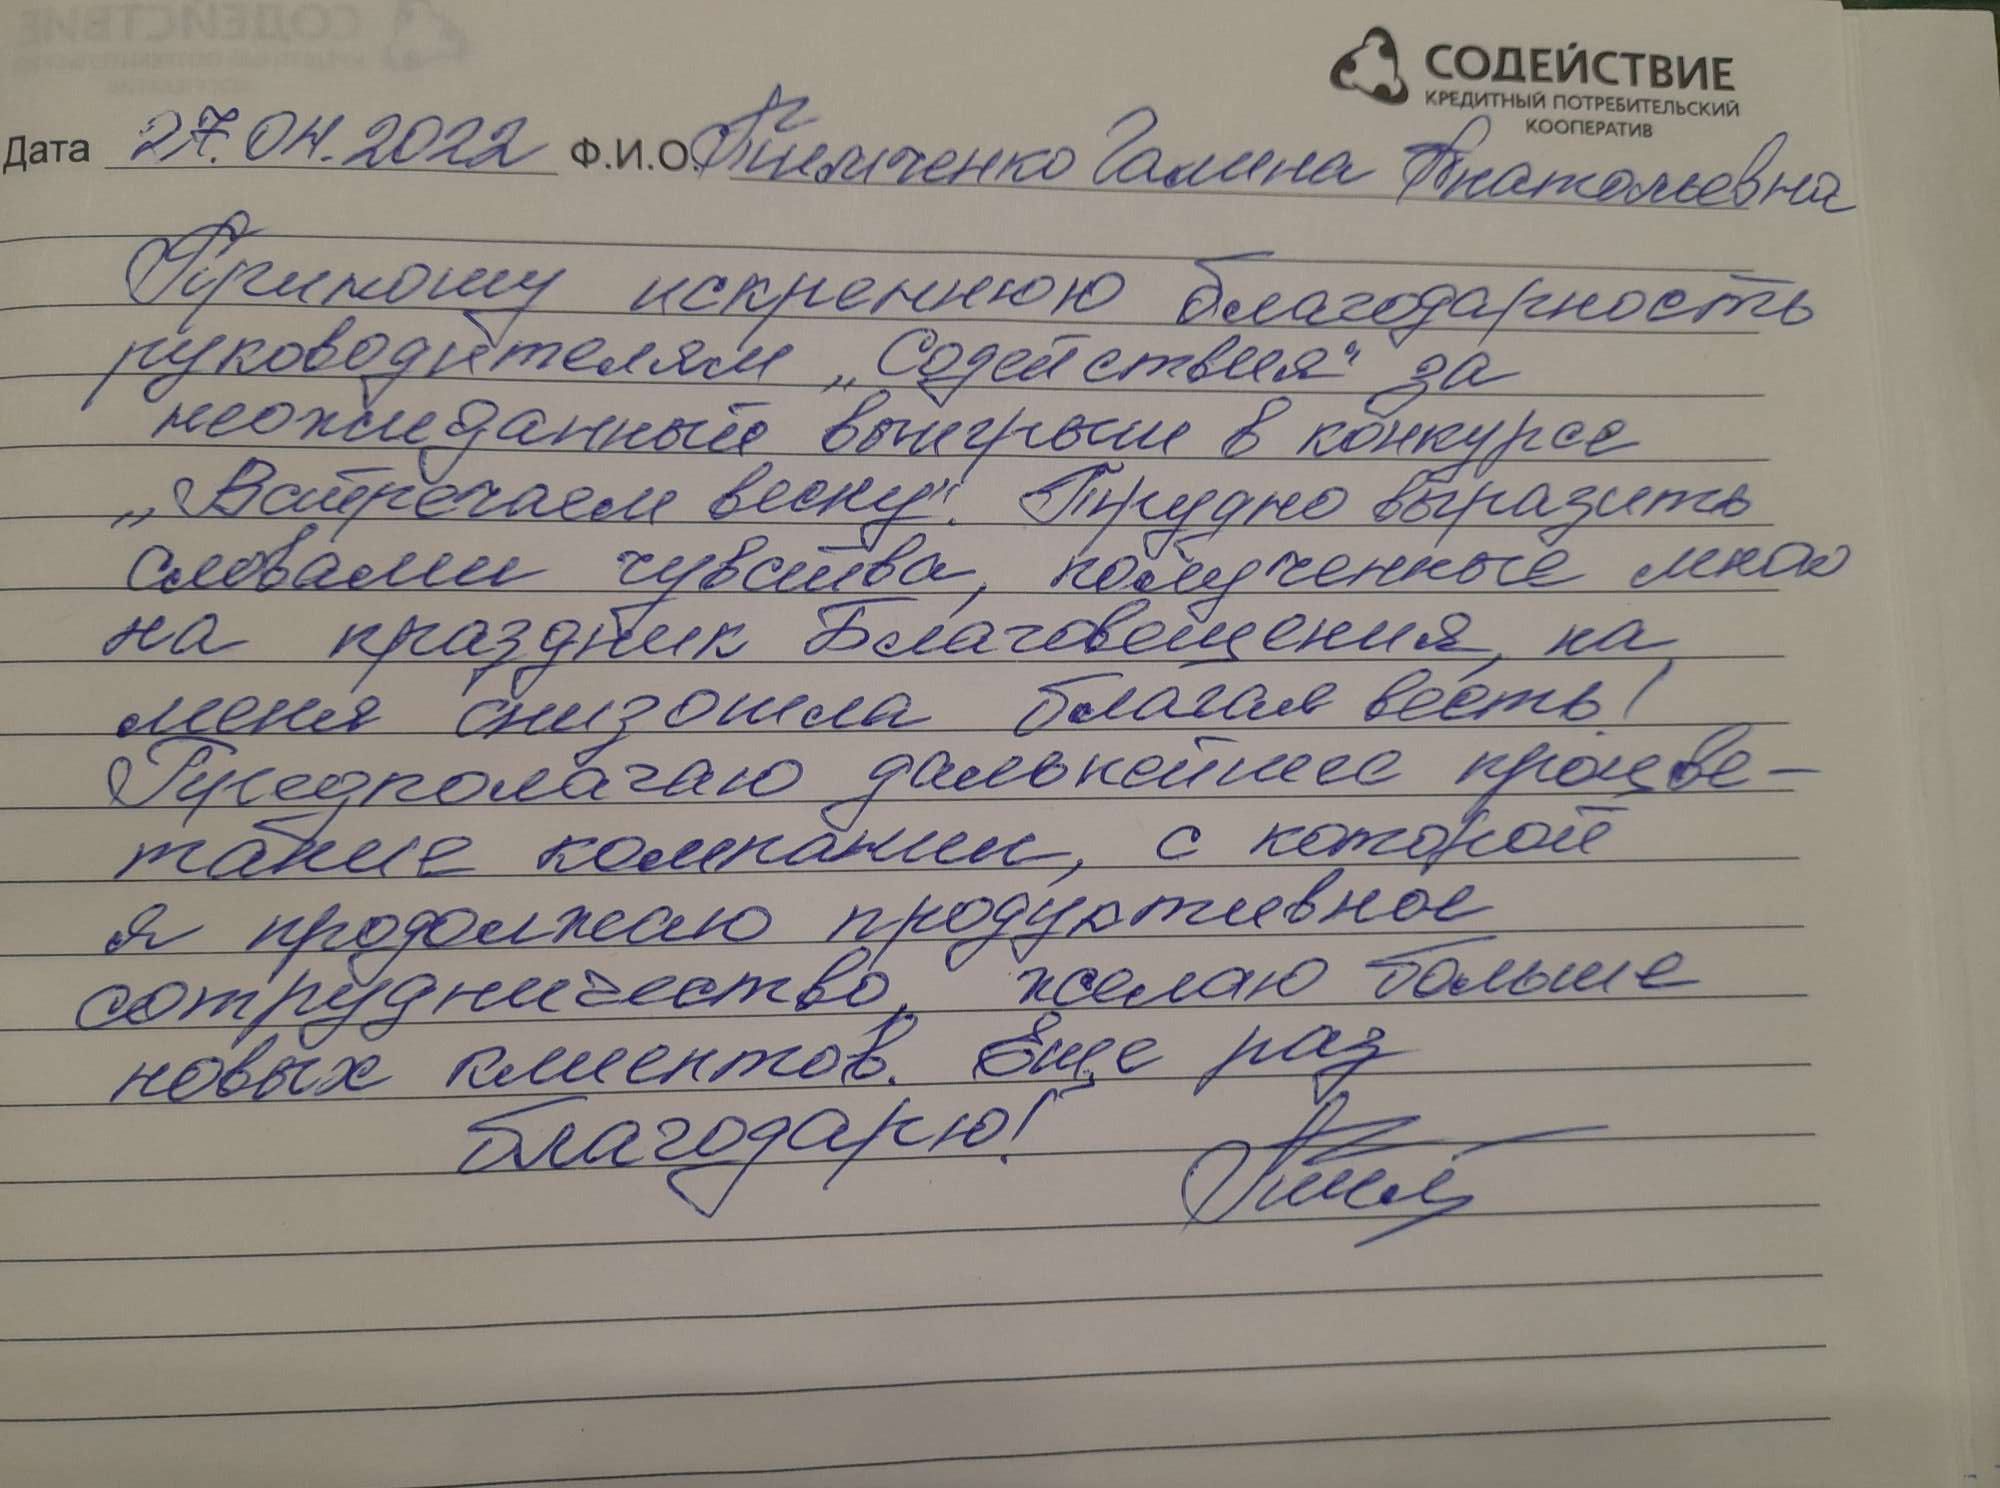 СОДЕЙСТВИЕ
КРЕДИТНЫЙ ПОТРЕБИТЕЛЬСКИЙ
КООПЕРАТИВ
Дата 27.04.2022 Ф.И.О. Пимченко Галина Анатольевна
Приношу искреннюю благодарность
руководителям „Содействия“ за
неожиданный выигрыш в конкурсе
„Встречаем весну“. Трудно выразить
словами чувства, полученные мною
на праздник Благовещения, на
меня снизошла благая весть!
Предполагаю дальнейшее процве-
тание компании, с которой
я продолжаю продуктивное
сотрудничество, желаю больше
новых клиентов. Еще раз
благодарю!